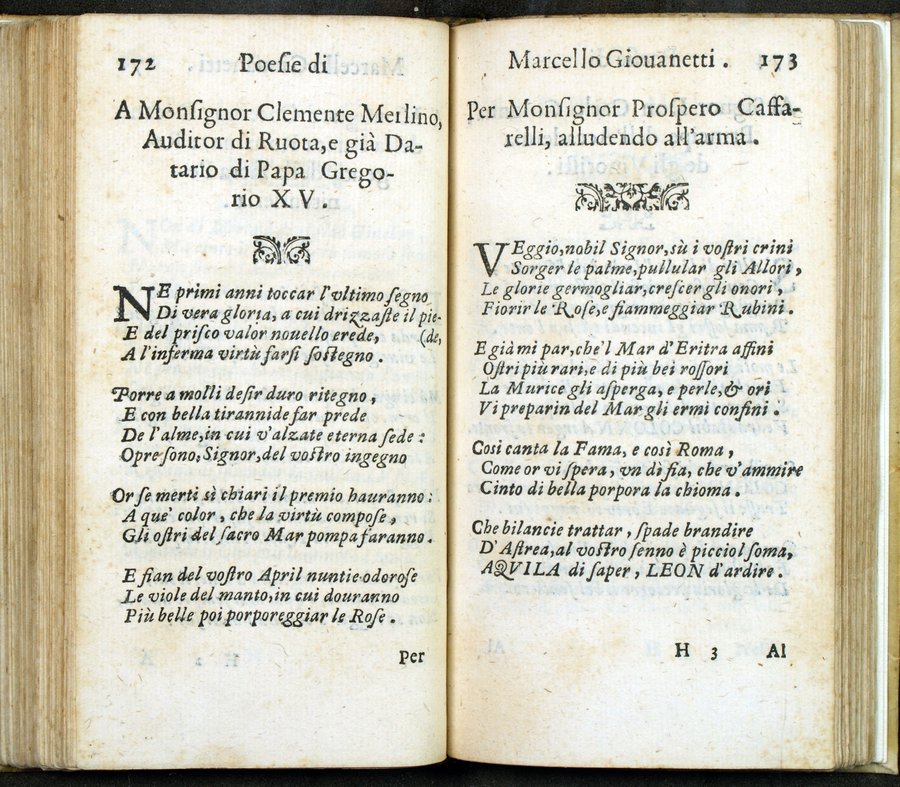 172 Poesie di
A Monſignor Clemente Merlino,
Auditor di Ruota, e già Da-
tario di Papa Grego-
rio XV.
NE primi anni toccar l'vltimo ſegno
Di vera gloria, a cui drizzaſte il pie-
E del priſco valor nouello erede, (de,
A l'inferma virtù farſi ſoſtegno.
Porre a molli deſir duro ritegno,
E con bella tirannide far prede
De l'alme, in cui v'alzate eterna ſede:
Opre ſono, Signor, del voſtro ingegno
Or ſe merti sì chiari il premio hauranno:
A que' color, che la virtù compoſe,
Gli oſtri del ſacro Mar pompa faranno.
E fian del voſtro April nuntie odoroſe
Le viole del manto, in cui douranno
Più belle poi porporeggiar le Roſe.
Per
Marcello Giouanetti. 173
Per Monſignor Proſpero Caffa-
relli, alludendo all'arma.
VEggio, nobil Signor, sù i voſtri crini
Sorger le palme, pullular gli Allori,
Le glorie germogliar, creſcer gli onori,
Fiorir le Roſe, e fiammeggiar Rubini.
E già mi par, che'l Mar d'Eritra affini
Oſtri più rari, e di più bei roſſori
La Murice gli aſperga, e perle, & ori
Vi preparin del Mar gli ermi confini.
Cosi canta la Fama, e così Roma,
Come or vi ſpera, vn dì fia, che v'ammire
Cinto di bella porpora la chioma.
Che bilancie trattar, ſpade brandire
D'Aſtrea, al voſtro ſenno è picciol ſoma,
AQVILA di ſaper, LEON d'ardire.
H 3 Al